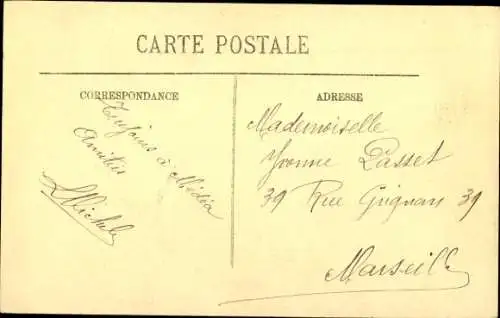 CARTE POSTALE
CORRESPONDANCE
Toujours à Médéa
Amitiés
L Michel
ADRESSE
Mademoiselle
Yvonne Passet
39 Rue Grignan 39
Marseille